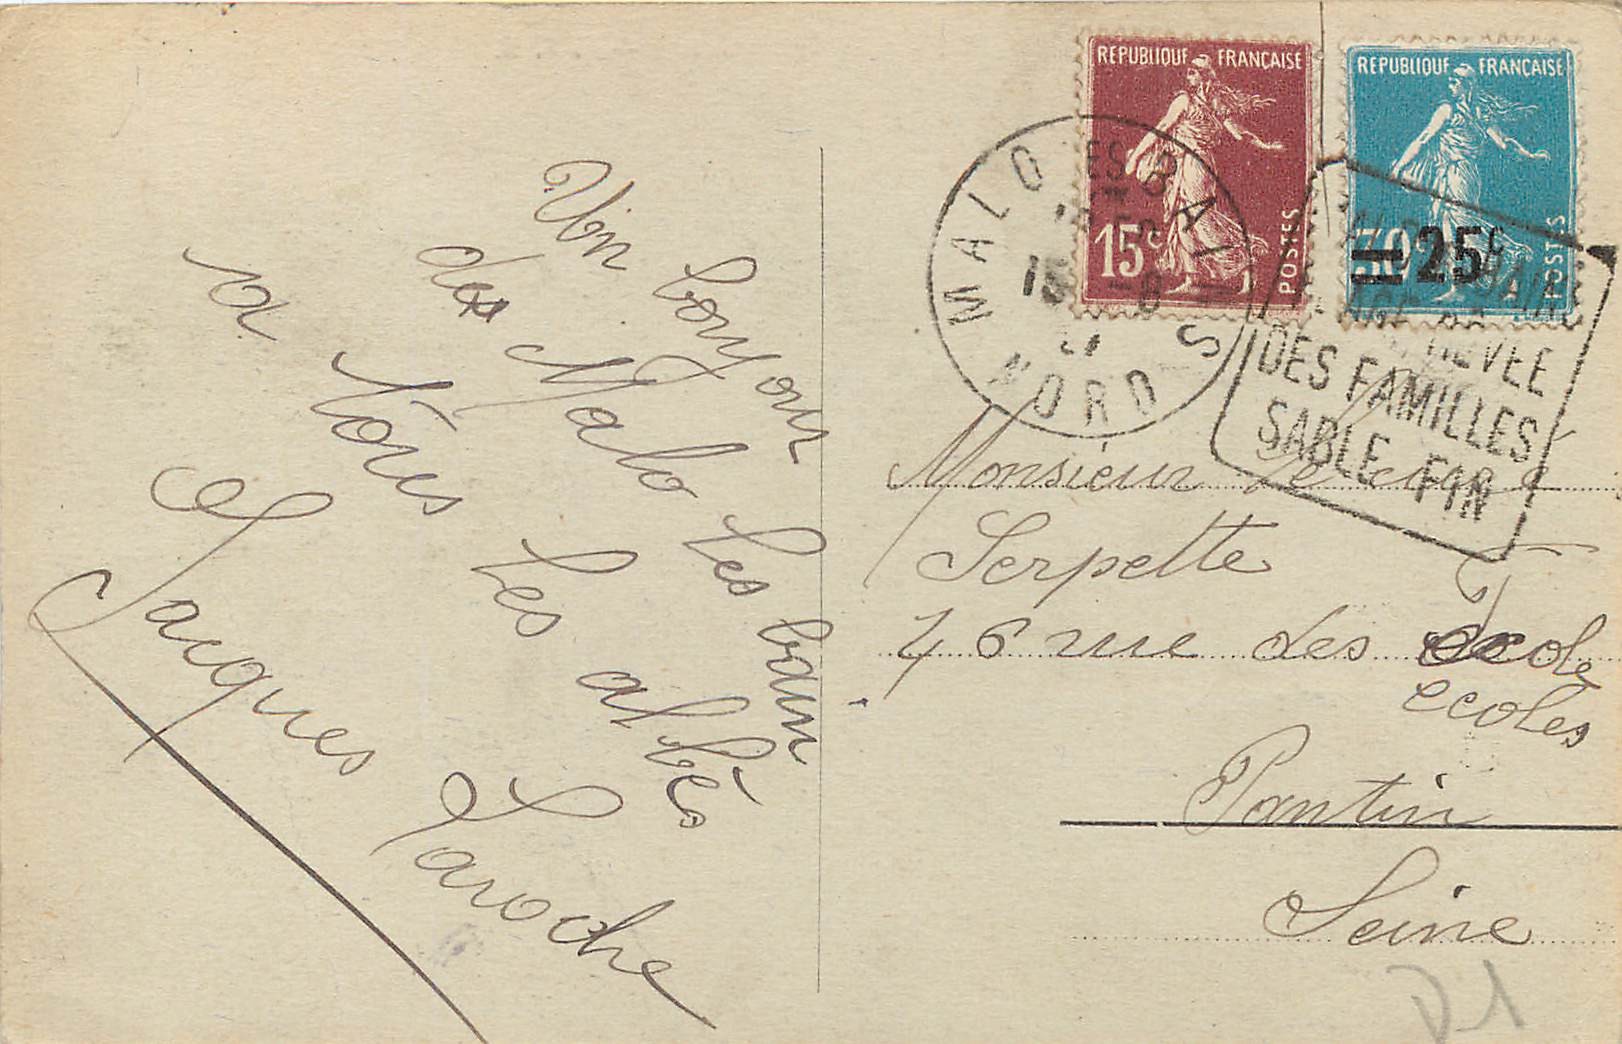 Un bonjour
des Malo les bain
a tous les abbés
Jacques Laroche
REPUBLIQUE FRANÇAISE
15c
POSTES
REPUBLIQUE FRANÇAISE
30
25c
POSTES
MALO LES BAINS
15 -8
NORD
DES FAMILLES
SABLE FIN
Monsieur
Serpette
46 rue des ecole
ecoles
Pantin
Seine